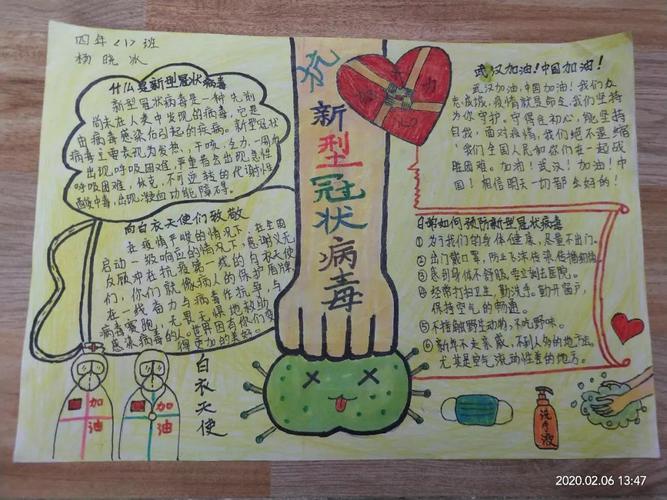 四年（1）班
杨晓冰
什么是新型冠状病毒
新型冠状病毒是一种先前
尚未在人类中发现的病毒，它是
由病毒感染后引起的疾病。新型冠状
病毒主要表现为发热，干咳，乏力，一周内
出现呼吸困难，严重者会出现急性
呼吸困难，休克，不可逆转的代谢性
酸中毒，出现凝血功能障碍。
向白衣天使们致敬
在疫情严峻的情况下，在全国
启动一级响应的情况下，感谢义无
反顾冲在抗疫第一线的白衣天使
们，你们就像病人的保护盾牌，
在一线奋力与病毒作抗争，与
病毒赛跑，无畏无惧地救助
感染病毒的人，世界因有你们变
得更加的美好。
白衣天使
加油
加油
抗
新型冠状病毒
武汉加油！中国加油！
武汉加油，中国加油！我们众
志成城，疫情就是命令，我们坚持
为你守护，守得住初心，能坚持
自我，面对疫情，我们绝不退缩
我们全国人民和你们在一起战
胜困难。加油！武汉！加油！中
国！相信明天一切都会好的！
日常如何预防新型冠状病毒
①为了我们的身体健康，尽量不出门。
②出门戴口罩，防止飞沫传染，传播病菌。
③感到身体不舒服，要立刻去医院。
④经常打扫卫生，勤洗手。勤开窗户，
保持空气的畅通。
⑤不接触野生动物，不吃野味。
⑥新年不走亲戚，不到人多的地方去，
尤其是空气流动性差的地方。
洗手液
2020.02.06 13:47